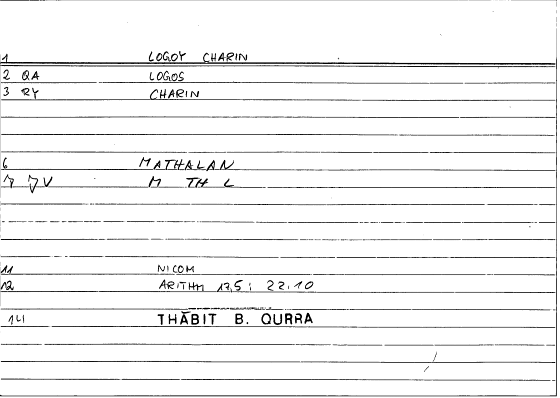 1 LOGOY CHARIN
2 QA LOGOS
3 RY CHARIN
6 MATHALAN
7 V M TH L
11 NICOM
12 ARITHM 17,5; 22.10
141 THĀBIT B. QURRA